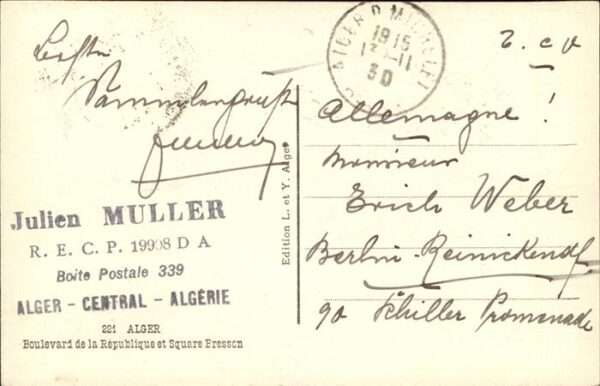 Beste
Sammlergrüße
Julien MULLER
R. E. C. P. 19908 D A
Boite Postale 339
ALGER - CENTRAL - ALGÉRIE
221 ALGER
Boulevard de la République et Square Bresson
Edition L. et Y. Alger
ALGER R. MICHELET
1915
13-11
30
T. C. V
Allemagne !
Monsieur
Erich Weber
Berlin-Reinickendf
90 Schiller Promenade